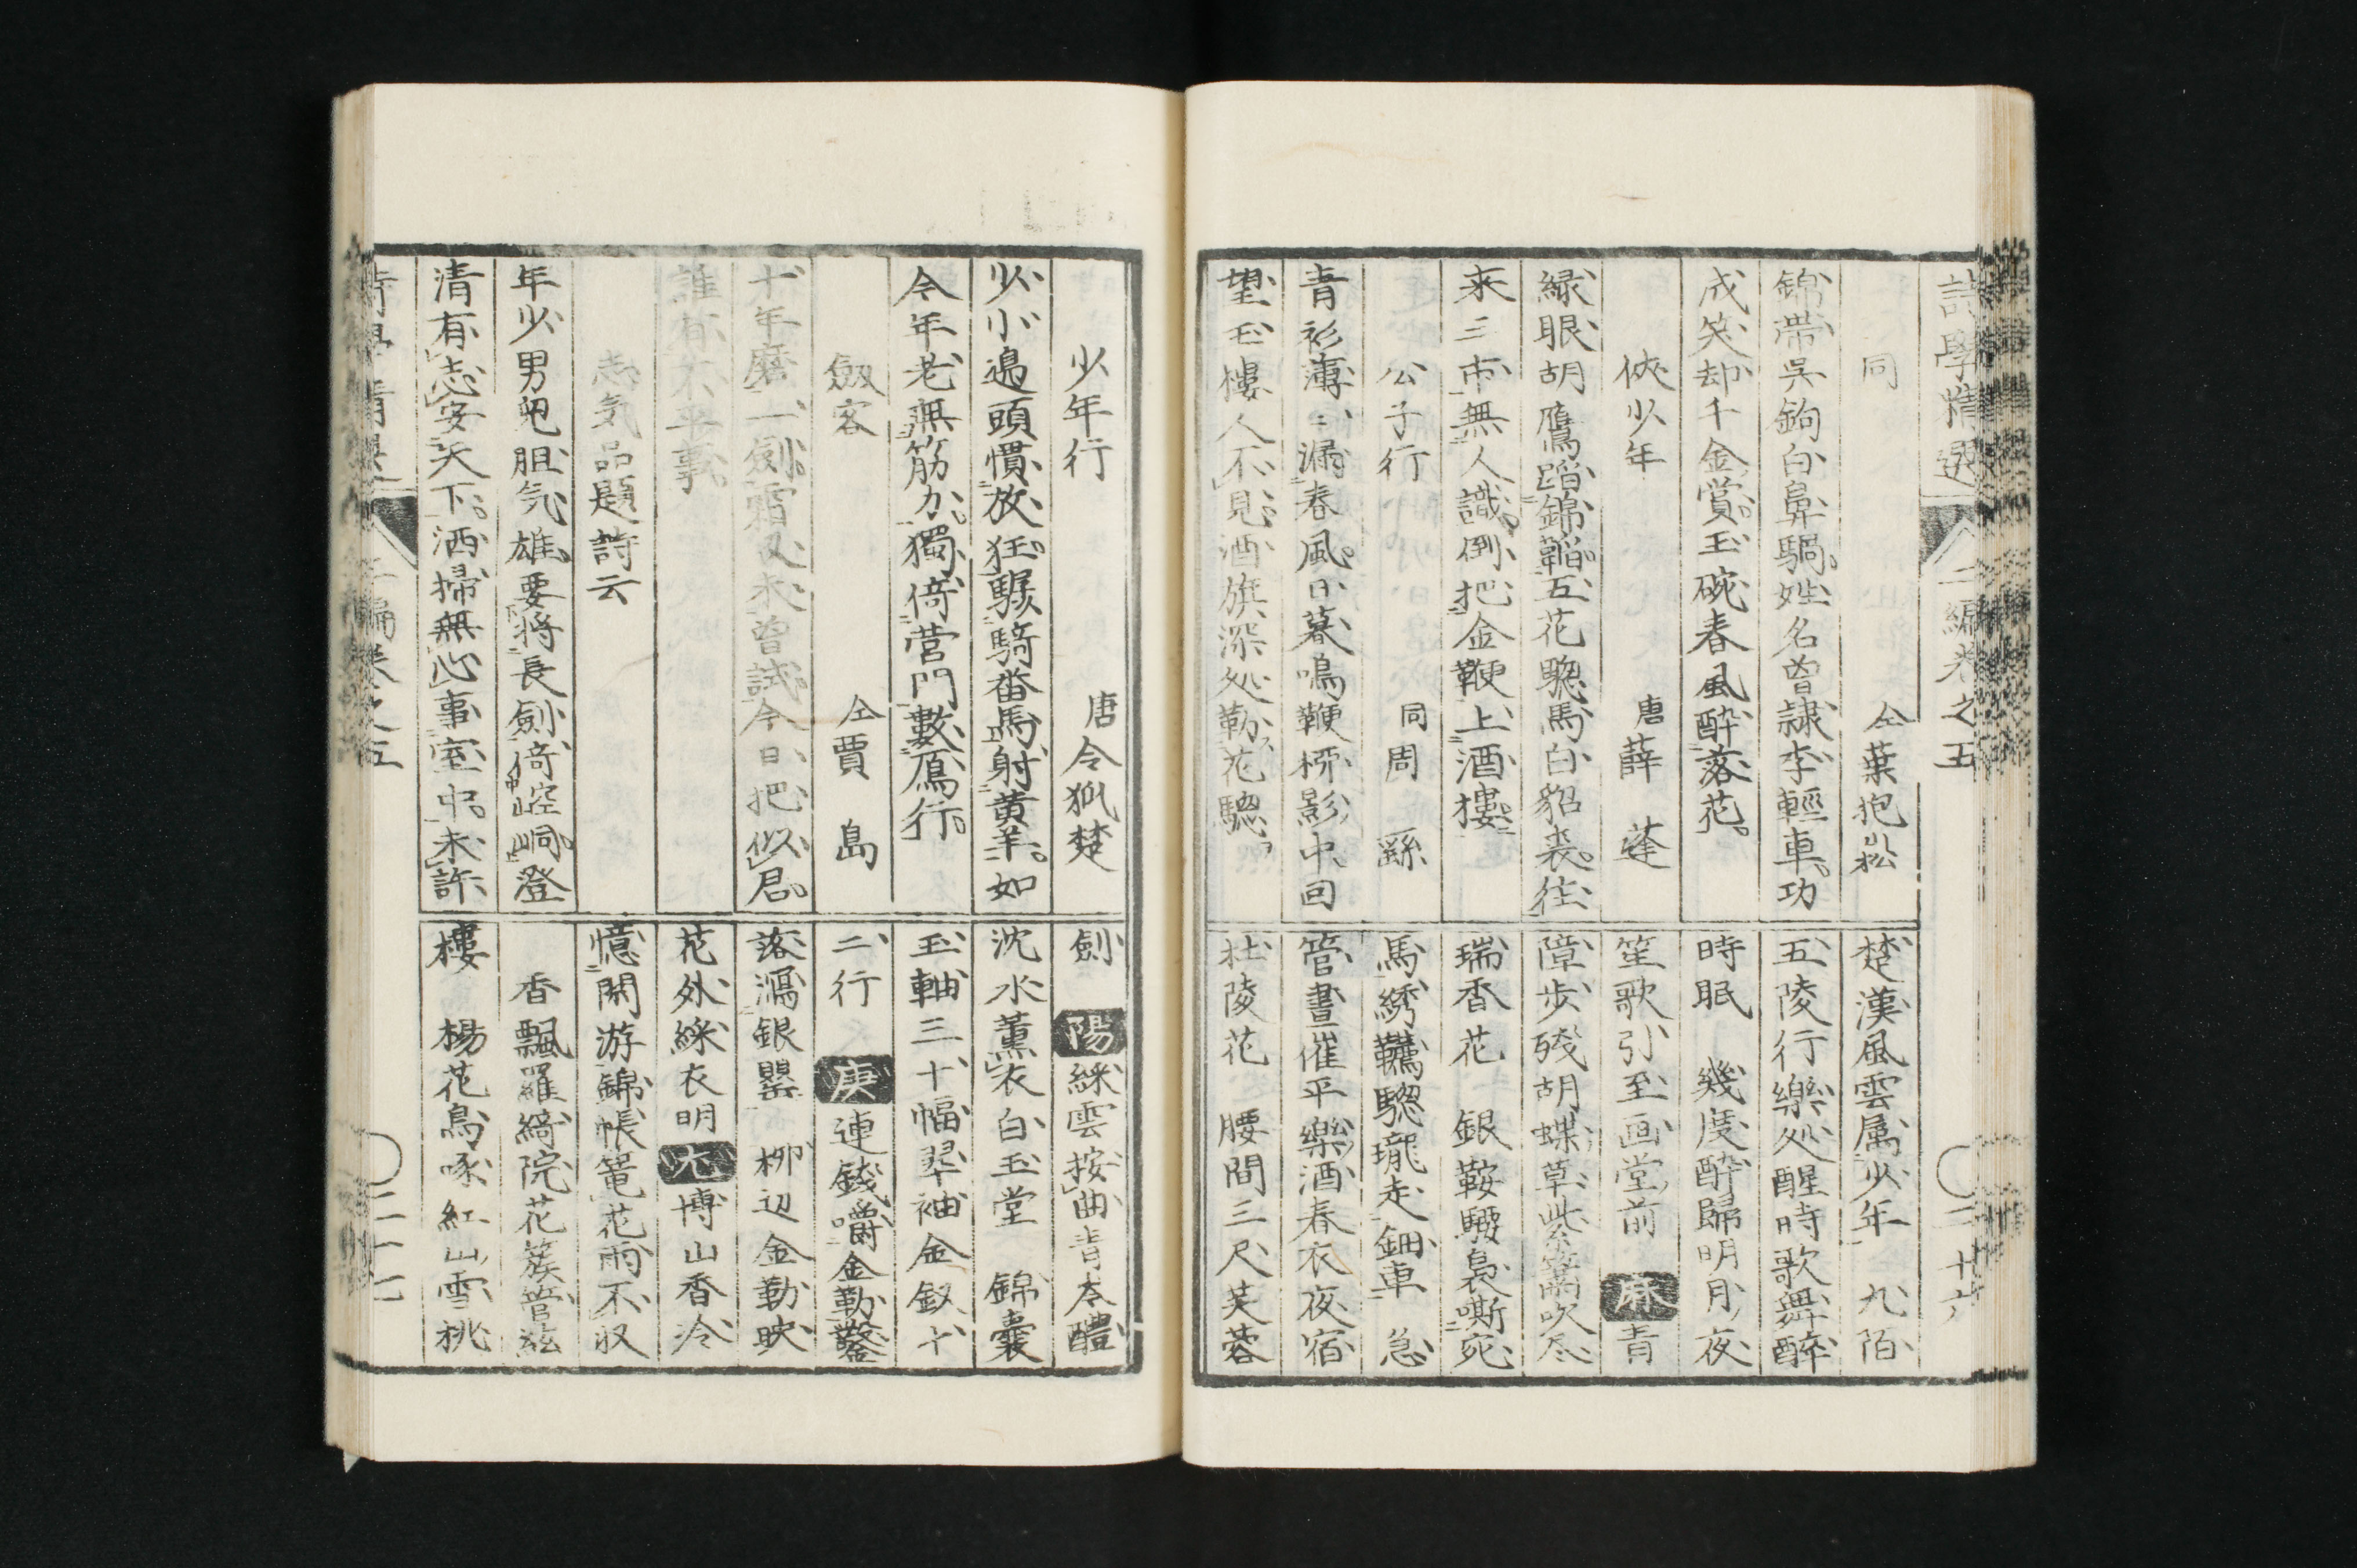 詩學精選 二編卷之五 二十六
同 仝葉抱崧
錦帶吳鉤白鼻騧姓名曾隷李輕車功
成笑却千金賞玉碗春風醉落花
俠少年 唐薛蓬
緑眼胡鷹蹈錦韜五花驄馬白貂裘往
來三市無人識倒把金鞭上酒樓
公子行 同周繇
青衫薄〻漏春風日暮鳴鞭栁影中回
望玉樓人不見酒旗深処勒花驄
楚漢風雲属少年 九陌
五陵行樂処醒時歌舞醉
時眠 幾度醉歸明月夜
笙歌引至画堂前 麻 青
障歩殘胡蝶草紫簫吹尽
瑞香花 銀鞍騕裊嘶宛
馬綉韉驄瓏走鈿車 急
管晝催平樂酒春衣夜宿
杜陵花 腰間三尺芙蓉
少年行 唐令狐楚
少小邉頭慣放狂驏騎番馬射黄羊如
今年老無筋力獨倚营門數鴈行
劔客 仝賈島
十年磨一劔霜刃未曾試今日把似君
誰有不平事
志気品題詩云
年少男兒胆気雄要将長劔倚崆峒澄
清有志安天下洒掃無心事室中未許
劔 陽 綵雲按曲青岑醴
沈水薫衣白玉堂 錦嚢
玉軸三十幅翠袖金釵十
二行 庚 連錢嚼金勒鑿
落瀉銀罌 栁辺金勒映
花外綵衣明 六 博山香冷
憶開游錦帳篭花雨不収
香飄羅綺院花簇管絃
樓 楊花鳥啄紅山雪桃
詩學精選 二編卷之五 二十七